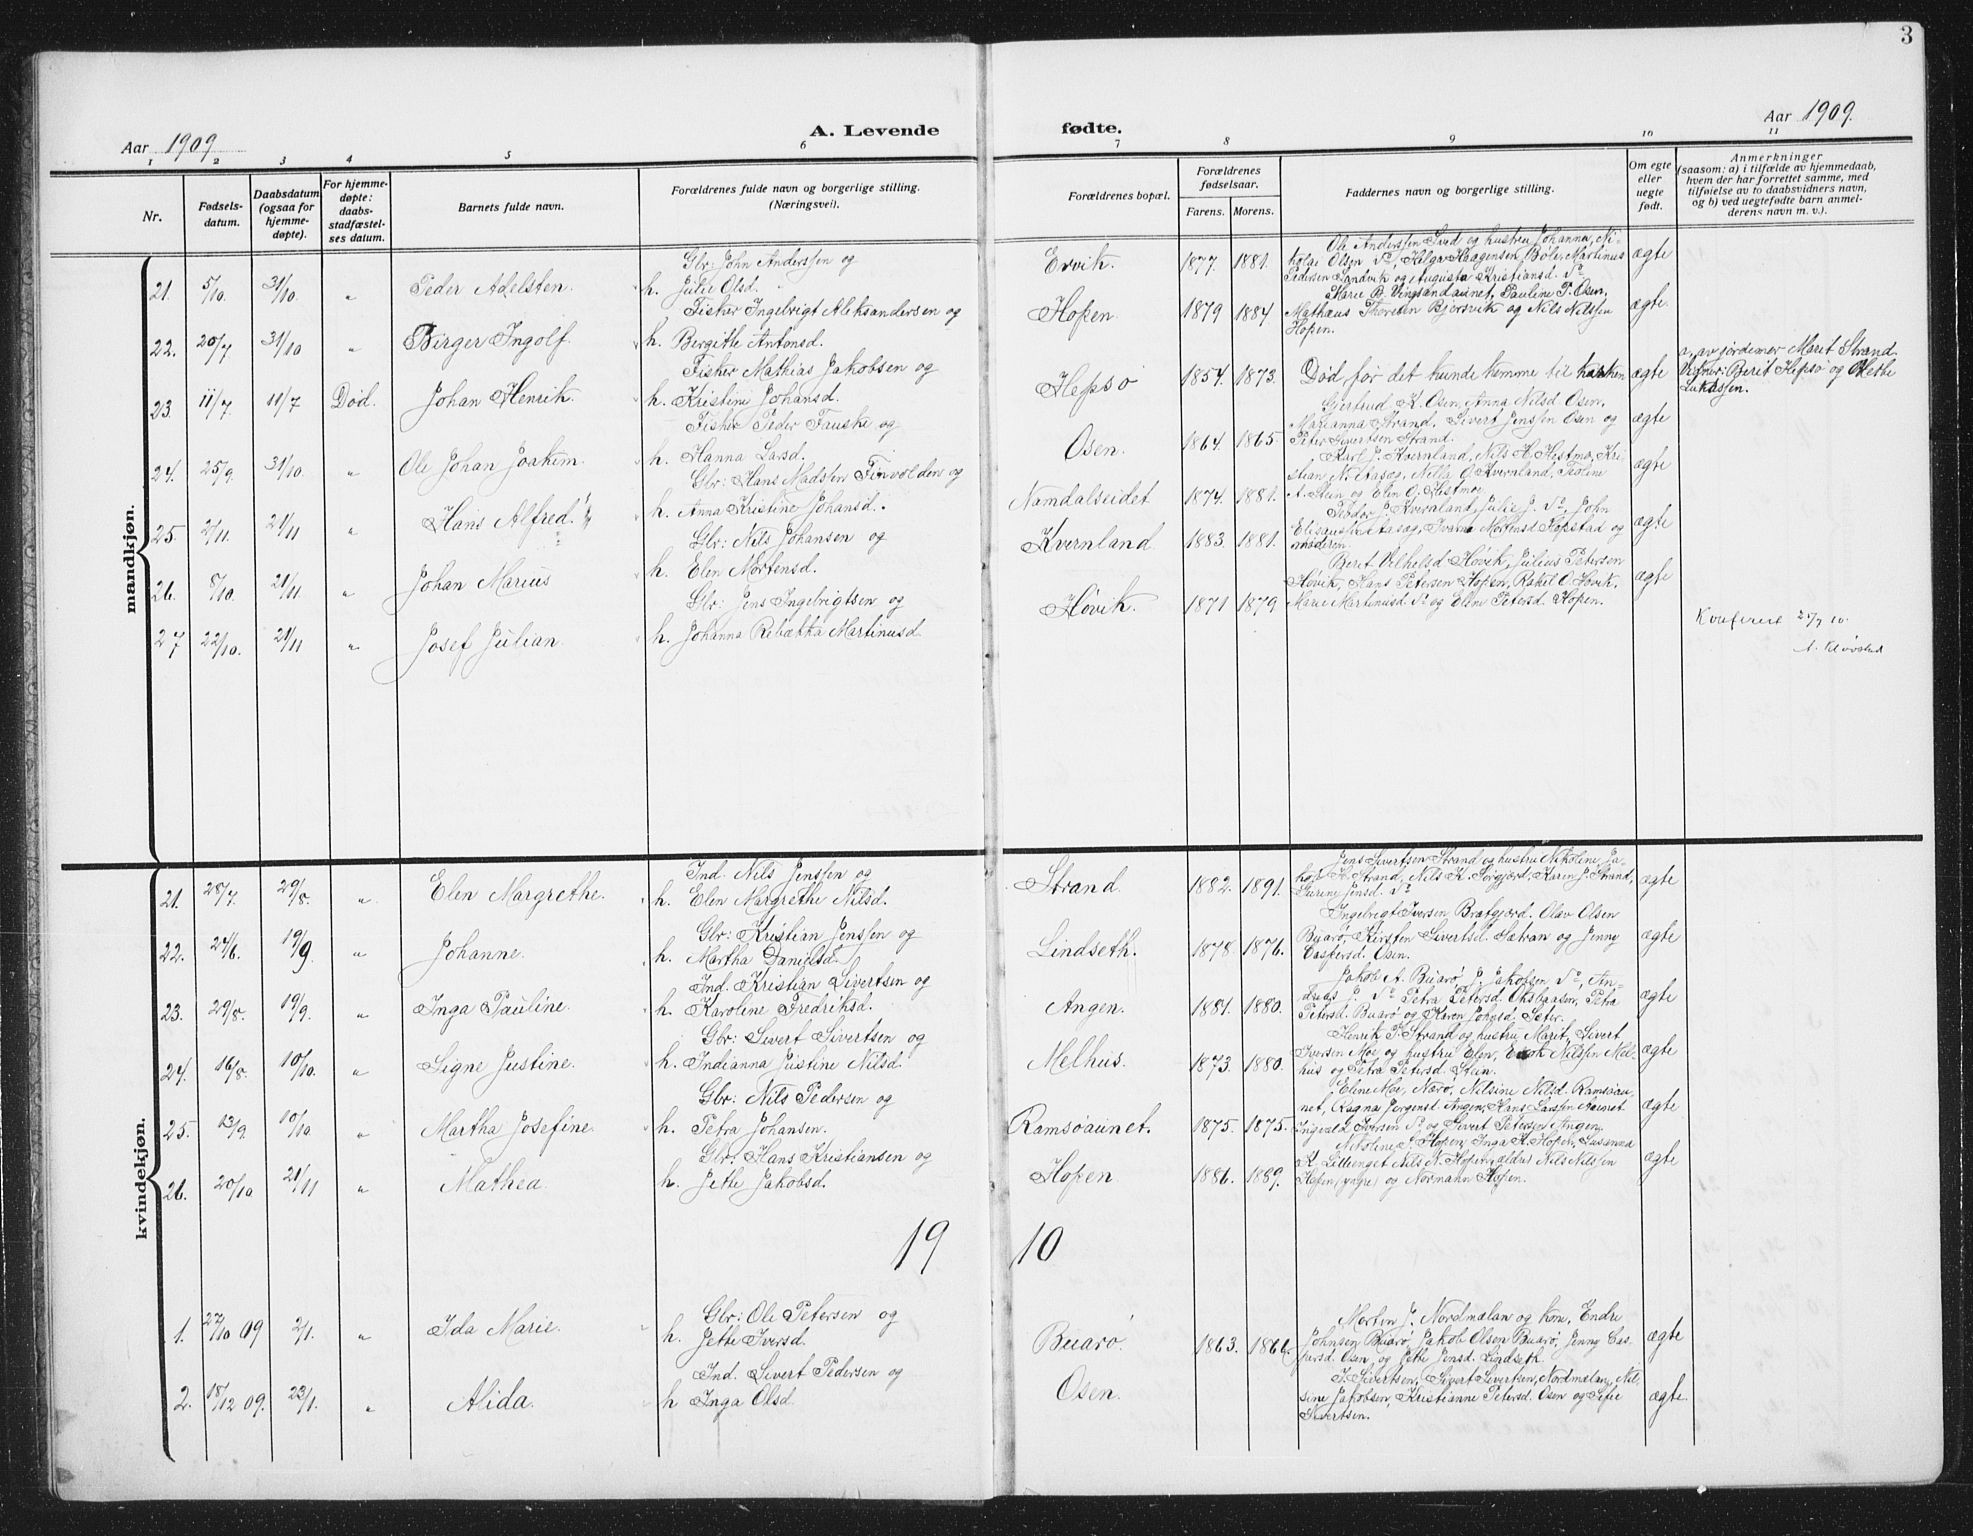 3
Aar 1909
A. Levende fødte.
Aar 1909.
1 2 3 4 5 6 7 8 9 10 11
Nr.
Fødsels-datum.
Daabsdatum (ogsaa for hjemme-døpte).
For hjemme-døpte: daabs-stadfæstel-ses datum.
Barnets fulde navn.
Forældrenes fulde navn og borgerlige stilling. (Næringsvei).
Forældrenes bopæl.
Forældrenes fødselsaar.
Farens. Morens.
Faddernes navn og borgerlige stilling.
Om egte eller uegte født.
Anmerkninger (saasom: a) i tilfælde av hjemmedaab, hvem der har forrettet samme, med tilføielse av to daabsvidners navn, og b) ved uegtefødte barn anmel-derens navn m. v.).
mandkjøn.
21. 5/10. 31/10. " Peder Adelsten. Gbr: John Anderssen og h. Julie Olsd. Ervik. 1877. 1881. Ole Anderssen Sved og hustru Johanna, Ni-kolai Olsen Sd, Helga Haagensen Bøle, Martinus Pedersen Sandvik og Augusta Kristiansd. Sd ægte
22. 20/7 31/10 " Birger Ingolf. Fisher Ingebrigt Aleksandersen og h. Bergitte Antonsd. Hopen. 1879 1884 Marie B. Vingsandaunet, Pauline P. Osen, Mathæus Thoresen Bjørsvik og Nils Nilssen Hopen. ægte
23. 11/7. 11/7 Død. Johan Henrik Fisher Mathias Jakobsen og h. Kristine Johansd. Hepsø 1854. 1873. Død før det kunde komme til kirken ægte a, av jordemor Marit Strand. Vidner: Berit Hepsø og Jethe Lukassen.
24. 25/9. 31/10. " Ole Johan Joakim. Fisher Peder Fauske og h. Hanna Larsd. Osen. 1864. 1865. Gjertrud K. Osen, Anna Nilsd Osen, Marianna Strand. Sivert Jenssen Osen og Peter Sivertsen Strand. ægte
25. 2/11. 21/11 " Hans Alfred. Gbr: Hans Madsen Finvolden og h. Anna Kristine Johansd. Namdalseidet 1874. 1881. Karl J. Kvernland, Nils H. Hestmo, Kri-stian N. Aasag, Nella O. Kvernland, Paline A. Stein og Elen O. Hestmo. ægte
26. 8/10. 21/11 " Johan Marius Gbr: Nils Johansen og h. Elen Mortensd. Kvernland 1883. 1881. Teodor J. Kvernland, Julie J. Sd, John Elisæussen Aasag, Ivarna Mortensd Hopstad og moderen. ægte
27 22/10. 21/11 " Josef Julian. Gbr: Jens Ingebrigtsen og h. Johanna Rebækka Martinusd. Høvik. 1871 1879 Beret Vilhelsd Høvik, Julius Petersen Høvik, Hans Petersen Hopen, Rakel O. Høvik. Marie Martinusd. Sd og Elen Petersd. Hopen. ægte
Konfereret 25/7 10.
A. Kløvstad
kvindekjøn.
21. 28/7. 29/8. " Elen Margrethe. Ind. Nils Jenssen og h. Elen Margrethe Nilsd. Strand. 1882. 1891. Jens Sivertsen Strand og hustru Nikoline, Ja-kob H. Strand, Nils K. Sørgjerd, Karen J. Strand, Gurine Jensd. Sd ægte
22. 24/6. 19/9. " Johanne. Gbr: Kristian Jenssen og h. Martha Danielsd. Lindseth. 1878. 1876. Ingebrigt Iversen Bratgjerd. Olav Olsen Buarø, Kirsten Sivertsd. Sætran og Jenny Caspersd. Osen. ægte
23. 29/8. 19/9. " Inga Pauline. Ind. Kristian Sivertsen og h. Karoline Fredriksd. Angen. 1881. 1880. Jakob A. Buarø, J. Jakobsen Sd, An-dreas J. Sd Petra Petersd. Oksbaasen, Petra Petersd. Buarø og Karen Johnsd. Seter. ægte
24. 16/8. 10/10. " Signe Justine. Gbr: Sivert Sivertsen og h. Indianna Justine Nilsd. Melhus. 1873. 1880. Henrik P. Strand og hustru Marit, Sivert Iversen Moe og hustru Elen, Nilssen Mel-hus og Petra Petersd. Stein. ægte
25. 12/9. 10/10 " Martha Josefine. Gbr: Nils Pedersen og h. Petra Johansen. Ramsøaunet. 1875. 1875. Eline Moe, Nærø, Nilsine Nilsd. Ramsøau-net, Ragna Jørgensd. Angen, Hans Larssen Aunet Ingvald Iversen Sd og Sivert Petersen Angen. ægte
26. 20/10 21/11 " Mathea. Gbr: Hans Kristiansen og h. Jethe Jakobsd. Hopen 1886. 1889. Nikoline Hopen, Inga K. Hopen, Susanna K. Lillienget Nils N. Hopen, ældre, Nils Nilssen Hopen (yngre) og Normann Hopen. ægte
19 10
1. 27/10 09 2/1. " Ida Marie. Gbr: Ole Petersen og h. Jethe Iversd. Buarø 1863. 1866. Morten J. Nordmelan og kone, Endre Johnsen Buarø, Jakob Olsen Buarø, Jenny Cas-persd. Osen, og Jethe Jensd. Lindseth. ægte
2. 18/12 09. 23/1. " Alida. Ind. Sivert Pedersen og h Inga Olsd. Osen. J. Sivertsen, Sivert Sivertsen, Nordmelan, Nil-sine Jakobsen, Kristianne Petersd. Osen og Sefie Sivertsen. ægte.